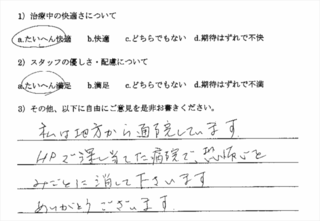 1) 治療中の快適さについて
a.たいへん快適 b.快適 c.どちらでもない d.期待はずれで不快
2) スタッフの優しさ・配慮について
a.たいへん満足 b.満足 c.どちらでもない d.期待はずれで不満
3) その他、以下に自由にご意見を是非お書きください。
私は地方から通院しています
HPで探し当てた病院で、恐怖心を
みごとに消して下さいます
ありがとうございます